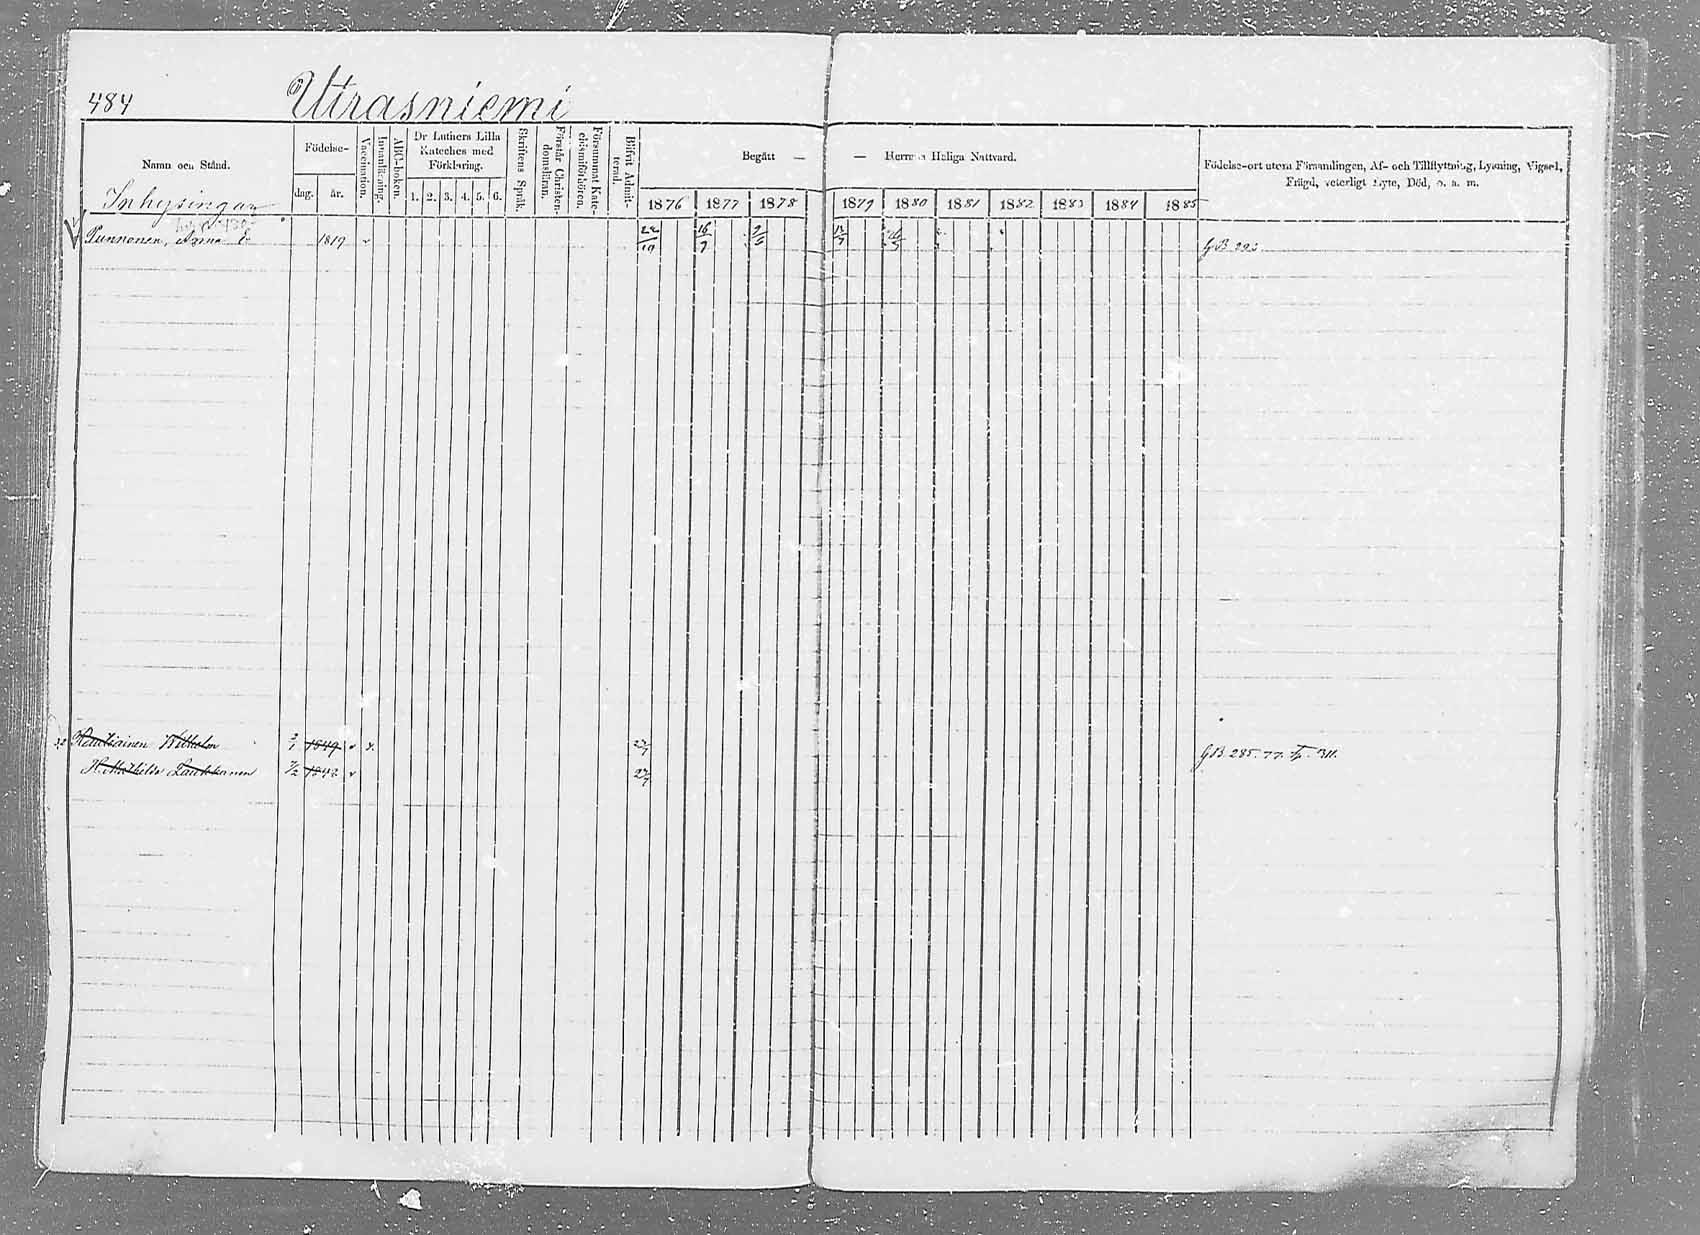 484 Utrasniemi
Namn och Stånd.
Födelse-
dag. år.
Vaccination.
Innanläsning.
ABC-boken.
Dr Luthers Lilla
Kateches med
Förklaring.
1. 2. 3. 4. 5. 6.
Skriftens Språk.
Förstår Christen-
domsläran.
Försummat Kate-
chismiförhören.
Blifvit Admit-
terad.
Begått — — Herrens Heliga Nattvard.
1876 1877 1878 1879 1880 1881 1882 1883 1884 1885
Födelse-ort utom Församlingen, Af- och Tillflyttning, Lysning, Vigsel,
Fräjd, veterligt Lyte, Död, o. s. m.
Inhysingar
Punnonen, Anna 1819 v 22/10 16/9
Wilhelm 1849 v v. G.B. 285. 77. 311.
H. Mathilda Laukkanen 7/2 1842 v